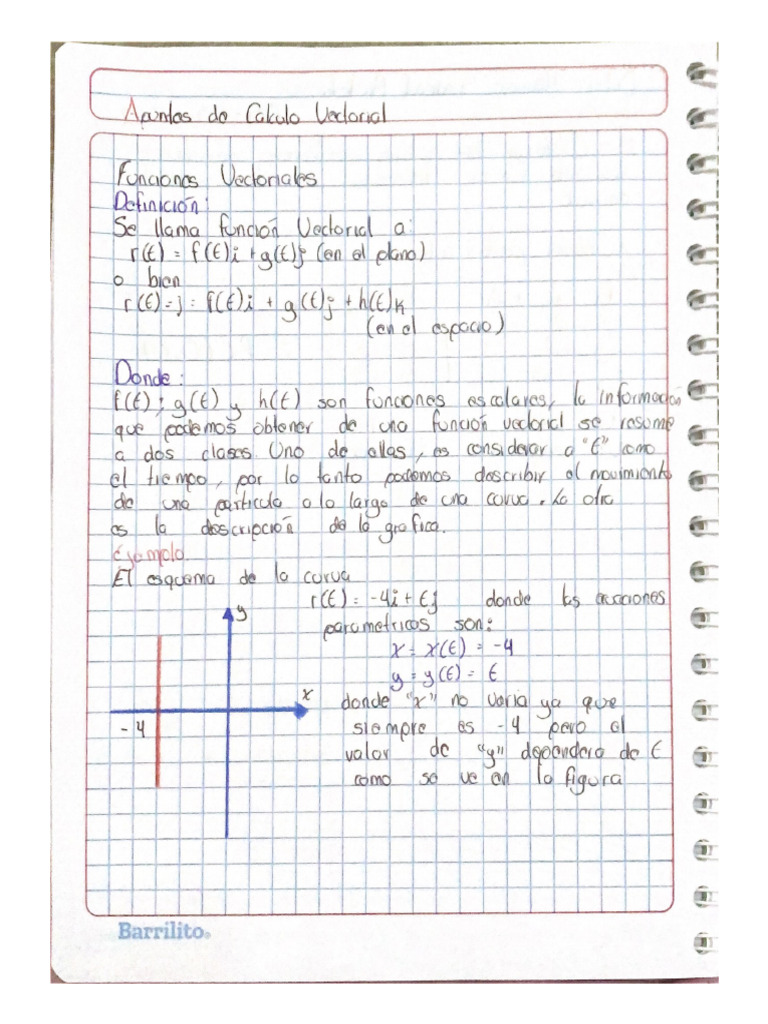 Apuntes de Calculo Vectorial
Funciones Vectoriales
Definición:
Se llama función Vectorial a:
r(t) = f(t)i + g(t)j (en el plano)
o bien
r(t)=j= f(t)i + g(t)j + h(t)k
(en el espacio)
Donde:
f(t); g(t) y h(t) son funciones escalares, la información
que podemos obtener de una función vectorial se resume
a dos clases. Uno de ellas, es considerar a "t" como
el tiempo, por lo tanto podemos describir el movimiento
de una particula a lo largo de una curva. La otra
es la descripción de la grafica.
Ejemplo
El esquema de la curva
r(t) = -4i + tj donde las ecuaciones
parametricas son:
x = x(t) = -4
y = y(t) = t
y
x
-4
donde "x" no varia ya que
siempre es -4 pero el
valor de "y" dependera de t
como se ve en la figura
Barrilito